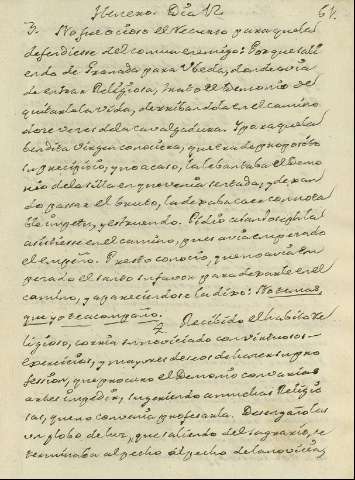 Henero. Dia 12
64.
3. No fue ocioso el Recurso para que la
defendiesse del comun enemigo: Porque sali
endo de Granada para Ubeda, donde avia
de entrar Religiosa, trato el Demonio de
quitarla la vida, derribandola en el camino
doze veces de la cavalgadura. Y para que la
bendita virgen conociera, que era de proposito
su precipicio, y no acaso, la lebantaba el Demo
nio de la silla en que venia sentada, y dexan
do passar el bruto, la dexaba caer con nota
ble impetu, y estruendo. Pidio a san Joseph la
assistiesse en el camino, pues avia empezado
el empeño. Presto conocio, que no avia em
pezado el santo su favor para dexarle en el
camino, y apareciendose la dixo: No temas,
que yo te acompaño.
4. Recibido el habito Re
ligioso, corria su noviciado con virtuosos
exercicios, y mayores deseos de hacer su pro
fession, que procuro el Demonio con varias
artes impedir, sugeriendo a muchas Religio
sas, que no convenia professarla. Desengañolas
un globo de luz, que saliendo del sagrario, se
terminaba al pecho de la novicia,